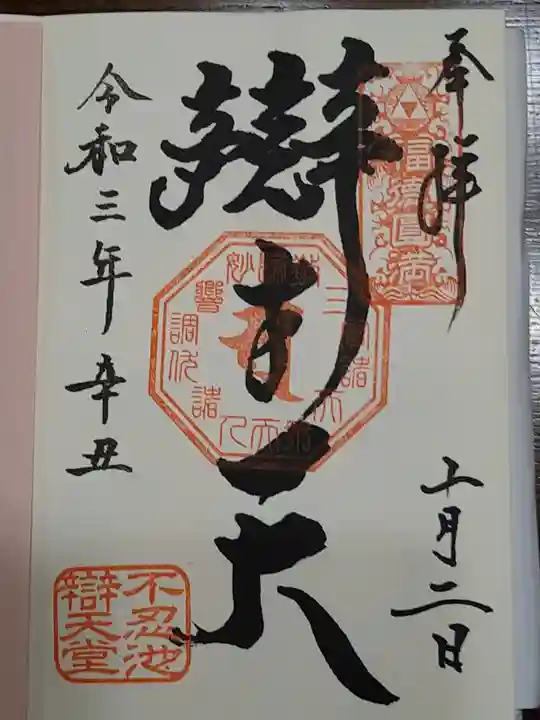 奉拝
福徳圓満
十月二日
辯才天
令和三年辛丑
不忍池
辯天堂